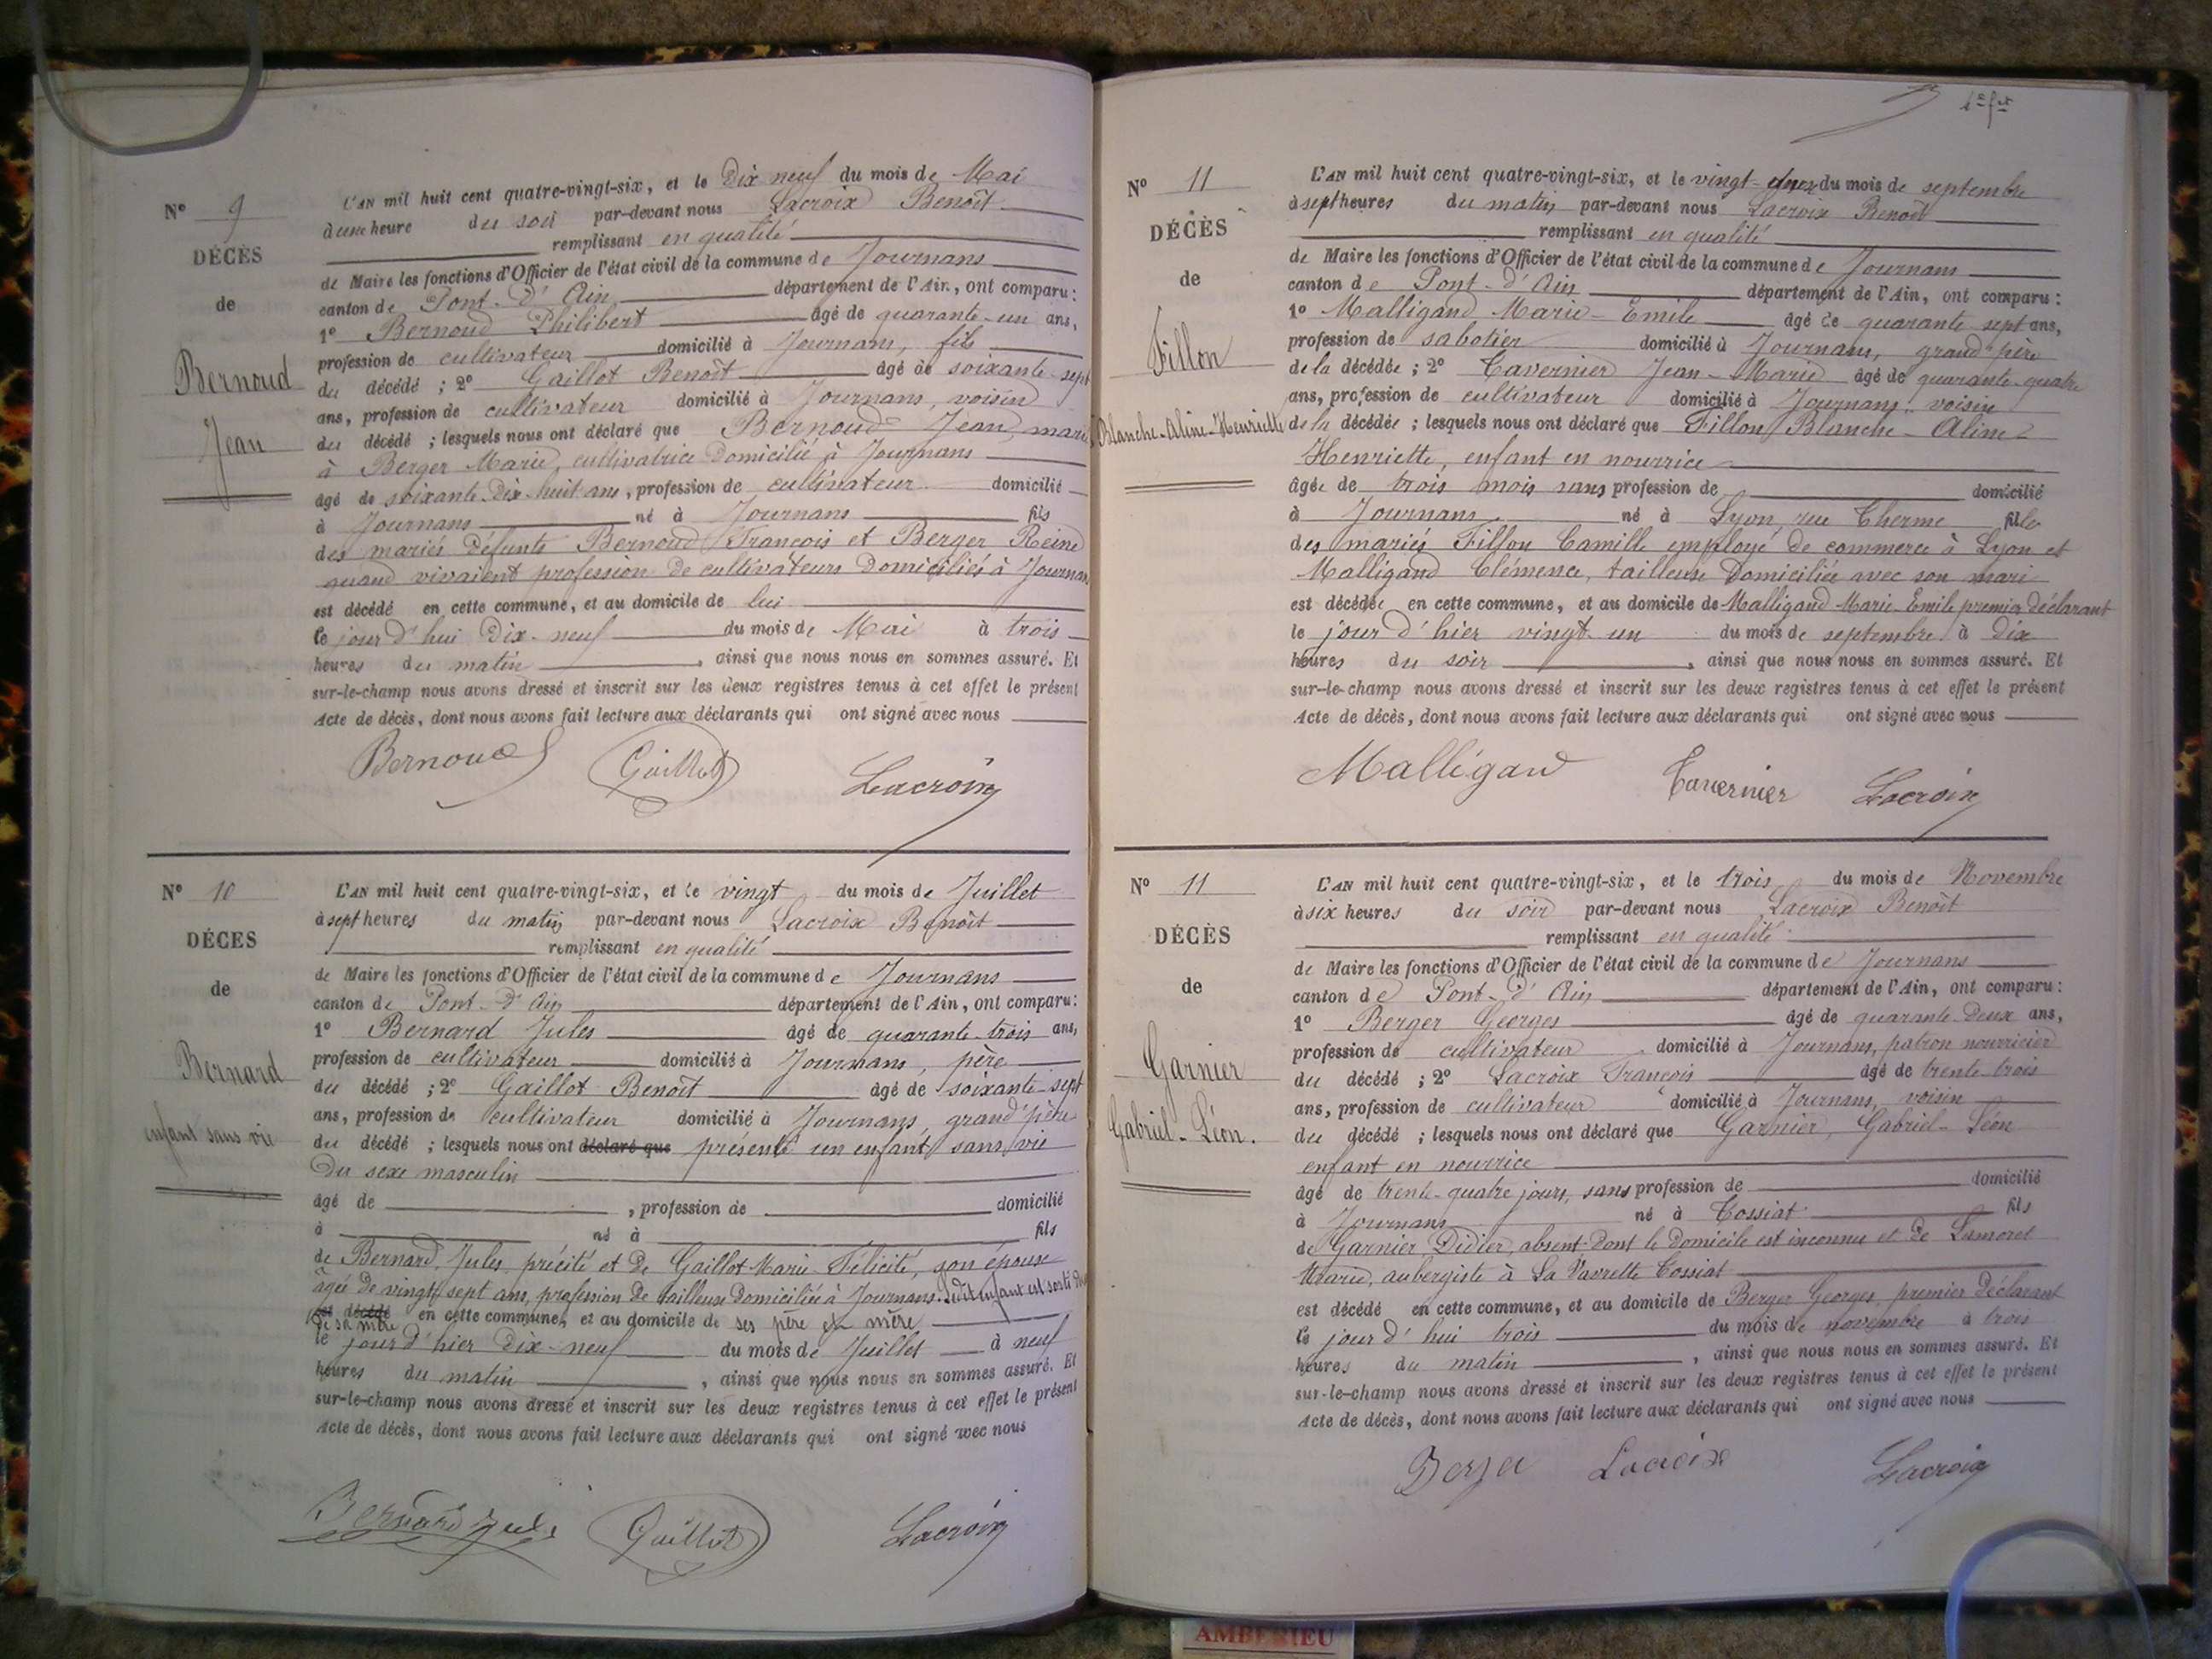 Nº 9
DÉCÈS
de
Bernoud
Jean
L'AN mil huit cent quatre-vingt-six, et le Dix neuf du mois de Mai
à une heure du soir par-devant nous Lacroix Benoît
remplissant en qualité
de Maire les fonctions d'Officier de l'état civil de la commune de Journans
canton de Pont-d'Ain département de l'Ain, ont comparu :
1º Bernoud Philibert âgé de quarante-un ans,
profession de cultivateur domicilié à Journans, fils
du décédé ; 2º Gaillot Benoît âgé de soixante-sept
ans, profession de cultivateur domicilié à Journans, voisin
du décédé ; lesquels nous ont déclaré que Bernoud Jean, marié
à Berger Marie, cultivatrice domiciliée à Journans
âgé de soixante-dix-huit ans, profession de cultivateur domicilié
à Journans né à Journans fils
des mariés défunts Bernoud François et Berger Reine
quand vivaient profession de cultivateurs domiciliés à Journans
est décédé en cette commune, et au domicile de lui
le jour d'hui Dix-neuf du mois de Mai à trois
heures du matin, ainsi que nous nous en sommes assuré. Et
sur-le-champ nous avons dressé et inscrit sur les deux registres tenus à cet effet le présent
Acte de décès, dont nous avons fait lecture aux déclarants qui ont signé avec nous
Bernoud Gaillot Lacroix
Nº 10
DÉCES
de
Bernard
enfant sans vie
L'AN mil huit cent quatre-vingt-six, et le vingt du mois de Juillet
à sept heures du matin par-devant nous Lacroix Benoît
remplissant en qualité
de Maire les fonctions d'Officier de l'état civil de la commune de Journans
canton de Pont-d'Ain département de l'Ain, ont comparu :
1º Bernard Jules âgé de quarante-trois ans,
profession de cultivateur domicilié à Journans, père
du décédé ; 2º Gaillot Benoît âgé de soixante-sept
ans, profession de cultivateur domicilié à Journans, grand'père
du décédé ; lesquels nous ont déclaré que présenté un enfant sans vie
du sexe masculin
âgé de , profession de domicilié
à né à fils
de Bernard, Jules, précité et de Gaillot Marie-Félicité, son épouse
âgée de vingt-sept ans, profession de tailleuse domiciliée à Journans. Ledit enfant est sorti du
est décédé en cette commune, et au domicile de ses père et mère
de sa mère
le jour d'hier Dix-neuf du mois de Juillet à neuf
heures du matin, ainsi que nous nous en sommes assuré. Et
sur-le-champ nous avons dressé et inscrit sur les deux registres tenus à cet effet le présent
Acte de décès, dont nous avons fait lecture aux déclarants qui ont signé avec nous
Bernard Jules Gaillot Lacroix
Nº 11
DÉCÈS
de
Fillon
Blanche-Aline-Henriette
L'AN mil huit cent quatre-vingt-six, et le vingt-deux du mois de septembre
à sept heures du matin par-devant nous Lacroix Benoît
remplissant en qualité
de Maire les fonctions d'Officier de l'état civil de la commune de Journans
canton de Pont-d'Ain département de l'Ain, ont comparu :
1º Malligand Marie-Emile âgé de quarante-sept ans,
profession de sabotier domicilié à Journans, grand'père
de la décédée ; 2º Tavernier Jean-Marie âgé de quarante-quatre
ans, profession de cultivateur domicilié à Journans, voisin
de la décédée ; lesquels nous ont déclaré que Fillon Blanche-Aline-
Henriette, enfant en nourrice
âgée de trois mois sans profession de domicilié
à Journans né à Lyon, rue Therme fille
des mariés Fillon Camille employé de commerce à Lyon et
Malligand Clémence, tailleuse domiciliée avec son mari
est décédée en cette commune, et au domicile de Malligand Marie-Emile premier déclarant
le jour d'hier vingt-un du mois de septembre à dix
heures du soir, ainsi que nous nous en sommes assuré. Et
sur-le-champ nous avons dressé et inscrit sur les deux registres tenus à cet effet le présent
Acte de décès, dont nous avons fait lecture aux déclarants qui ont signé avec nous
Malligand Tavernier Lacroix
Nº 11
DÉCÈS
de
Garnier
Gabriel-Léon.
L'AN mil huit cent quatre-vingt-six, et le trois du mois de Novembre
à six heures du soir par-devant nous Lacroix Benoît
remplissant en qualité
de Maire les fonctions d'Officier de l'état civil de la commune de Journans
canton de Pont-d'Ain département de l'Ain, ont comparu :
1º Berger Georges âgé de quarante-deux ans,
profession de cultivateur domicilié à Journans, patron nourricier
du décédé ; 2º Lacroix François âgé de trente-trois
ans, profession de cultivateur domicilié à Journans, voisin
du décédé ; lesquels nous ont déclaré que Garnier, Gabriel-Léon
enfant en nourrice
âgé de trente-quatre jours, sans profession de domicilié
à Journans né à Tossiat fils
de Garnier, Didier, absent dont le domicile est inconnu et de Lamoret
Marie, aubergiste à La Vavrette Tossiat
est décédé en cette commune, et au domicile de Berger Georges, premier déclarant
le jour d'hui trois du mois de novembre à trois
heures du matin, ainsi que nous nous en sommes assuré. Et
sur-le-champ nous avons dressé et inscrit sur les deux registres tenus à cet effet le présent
Acte de décès, dont nous avons fait lecture aux déclarants qui ont signé avec nous
Berger Lacroix Lacroix
AMBERIEU